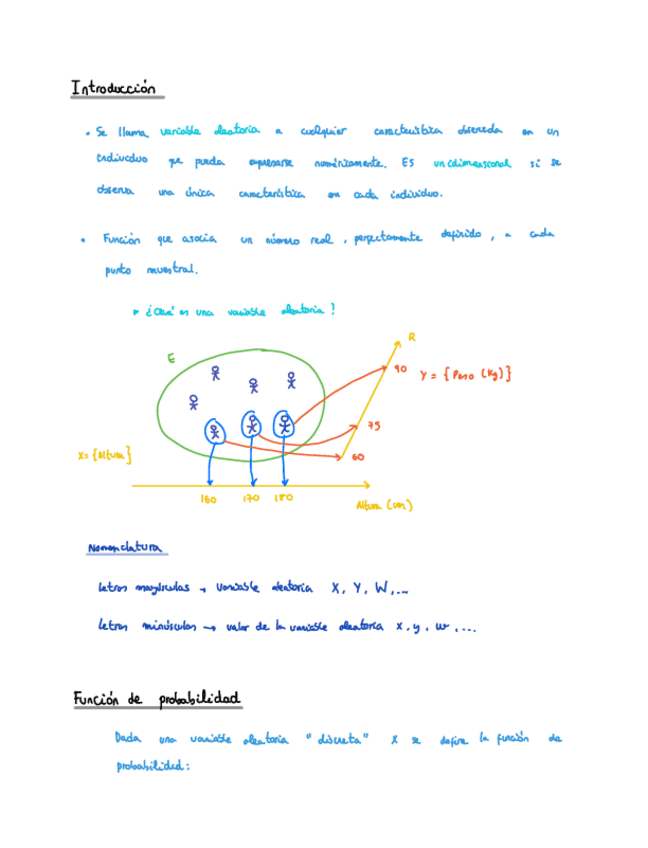 Introducción
• Se llama variable aleatoria a cualquier característica observada en un
individuo que pueda expresarse numéricamente. Es unidimensional si se
observa una única característica en cada individuo.
• Función que asocia un número real, perfectamente definido, a cada
punto muestral.
¿Qué es una variable aleatoria?
R
E
90 Y = {Peso (Kg)}
75
X = {Altura} 60
160 170 180
Altura (cm)
Nomenclatura
Letras mayúsculas → Variable aleatoria X, Y, W,...
Letras minúsculas → valor de la variable aleatoria x, y, w,...
Función de probabilidad
Dada una variable aleatoria "discreta" X se define la función de
probabilidad: